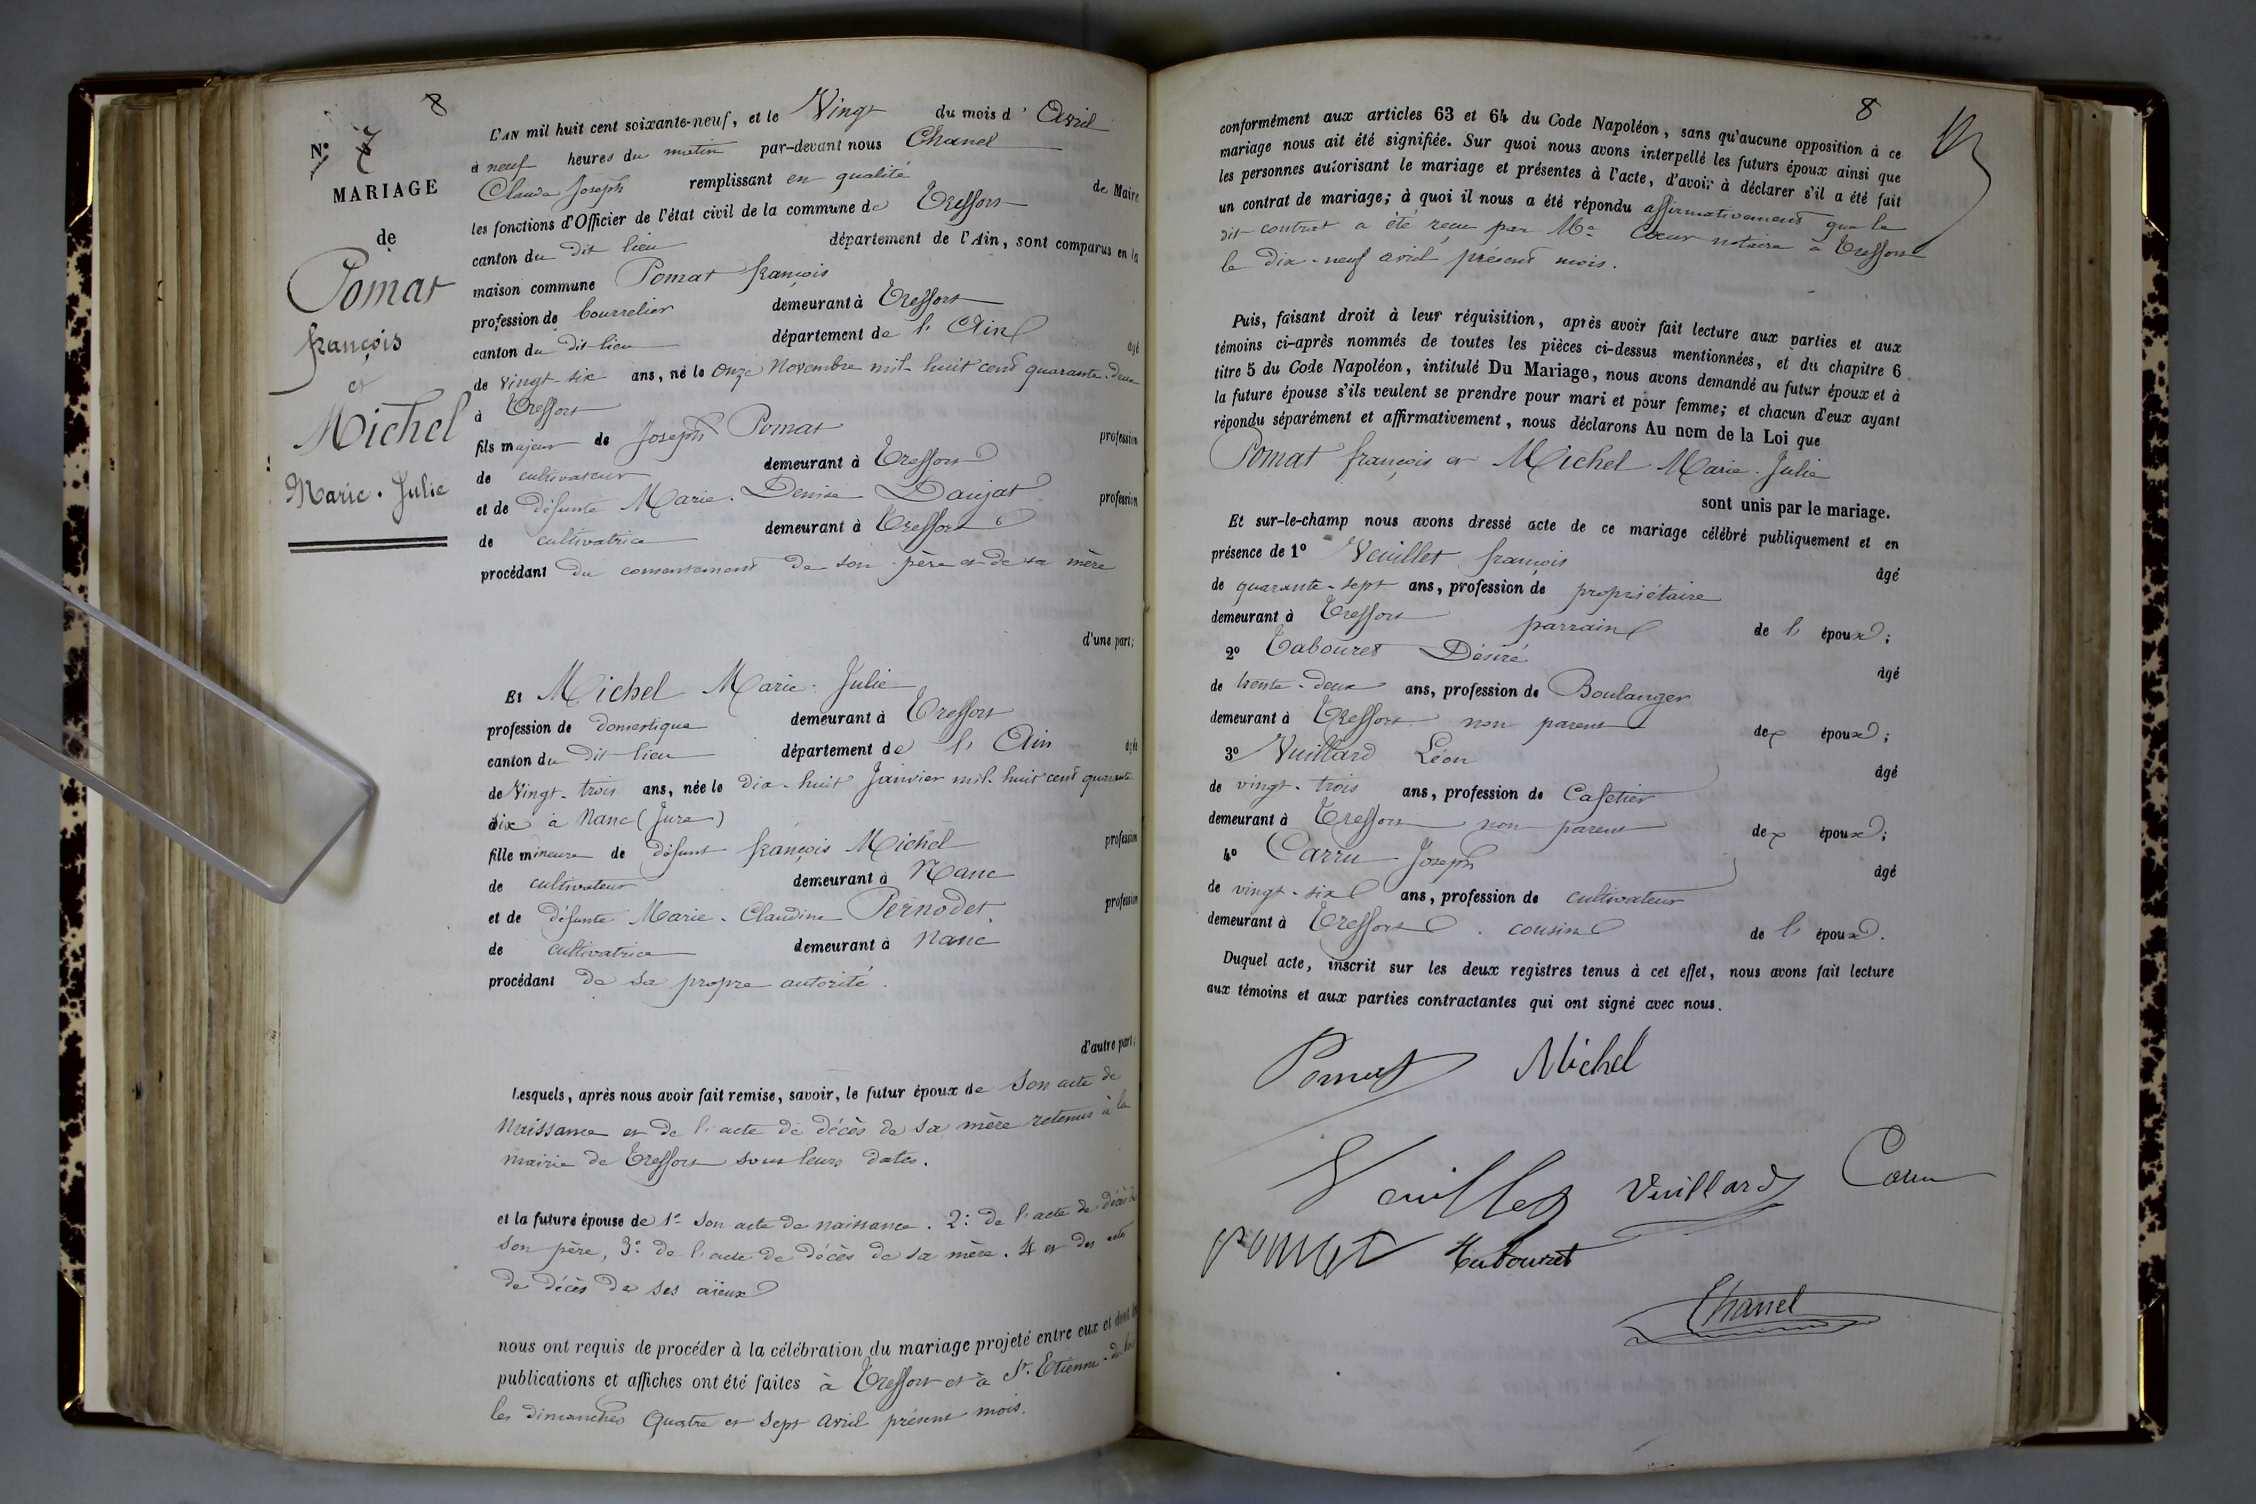 8
N° 7
MARIAGE
de
Pomat
françois
et
Michel
Marie-Julie
L'AN mil huit cent soixante-neuf, et le Vingt du mois d' Avril
à neuf heures du matin par-devant nous Chanel
Claude Joseph remplissant en qualité de Maire
les fonctions d'Officier de l'état civil de la commune de Treffort
canton du dit lieu département de l'Ain, sont comparus en la
maison commune Pomat françois
profession de bourrelier demeurant à Treffort
canton du dit-lieu département de l'Ain âgé
de vingt-six ans, né le onze Novembre mil-huit cent quarante-deux
à Treffort
fils majeur de Joseph Pomat profession
de cultivateur demeurant à Treffort
et de défunte Marie-Denise Daujat profession
de cultivatrice demeurant à Treffort
procédant du consentement de son père et de sa mère
d'une part;
Et Michel Marie-Julie
profession de domestique demeurant à Treffort
canton du dit lieu département de l'Ain âgée
de Vingt-trois ans, née le dix-huit Janvier mil-huit cent quarante
six à Nanc (Jura)
fille mineure de défunt françois Michel profession
de cultivateur demeurant à Nanc
et de défunte Marie-Claudine Pernodet profession
de cultivatrice demeurant à Nanc
procédant de sa propre autorité.
d'autre part;
Lesquels, après nous avoir fait remise, savoir, le futur époux de son acte de
Naissance et de l'acte de décès de sa mère retenus à la
mairie de Treffort sous leurs dates.
et la future épouse de 1° son acte de naissance. 2: de l'acte de décès de
son père, 3° de l'acte de décès de sa mère. 4 et des actes
de décès de ses aïeux
nous ont requis de procéder à la célébration du mariage projeté entre eux et dont les
publications et affiches ont été faites à Treffort et à St. Etienne-du-bois
les dimanches Quatre et sept avril présent mois.
8
conformément aux articles 63 et 64 du Code Napoléon, sans qu'aucune opposition à ce
mariage nous ait été signifiée. Sur quoi nous avons interpellé les futurs époux ainsi que
les personnes autorisant le mariage et présentes à l'acte, d'avoir à déclarer s'il a été fait
un contrat de mariage; à quoi il nous a été répondu affirmativement que le
dit contrat a été reçu par Me Cœur notaire à Treffort
le dix-neuf avril présent mois.
Puis, faisant droit à leur réquisition, après avoir fait lecture aux parties et aux
témoins ci-après nommés de toutes les pièces ci-dessus mentionnées, et du chapitre 6
titre 5 du Code Napoléon, intitulé Du Mariage, nous avons demandé au futur époux et à
la future épouse s'ils veulent se prendre pour mari et pour femme; et chacun d'eux ayant
répondu séparément et affirmativement, nous déclarons Au nom de la Loi que
Pomat françois et Michel Marie-Julie
sont unis par le mariage.
Et sur-le-champ nous avons dressé acte de ce mariage célébré publiquement et en
présence de 1° Veuillet françois âgé
de quarante-sept ans, profession de propriétaire
demeurant à Treffort parrain de l' époux;
2° Tabouret Désiré âgé
de trente-deux ans, profession de Boulanger
demeurant à Treffort non parent des époux;
3° Vuillard Léon âgé
de vingt-trois ans, profession de Cafetier
demeurant à Treffort non parent des époux;
4° Carru Joseph âgé
de vingt-six ans, profession de cultivateur
demeurant à Treffort cousin de l' époux.
Duquel acte, inscrit sur les deux registres tenus à cet effet, nous avons fait lecture
aux témoins et aux parties contractantes qui ont signé avec nous.
Pomat Michel
Veuillet Vuillard Carru
Pomat Tabouret
Chanel